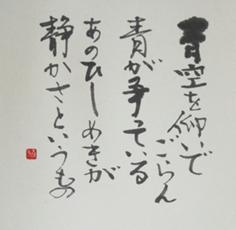 青空を仰いで
ごらん
青が争っている
あのひしめきが
静かさというもの